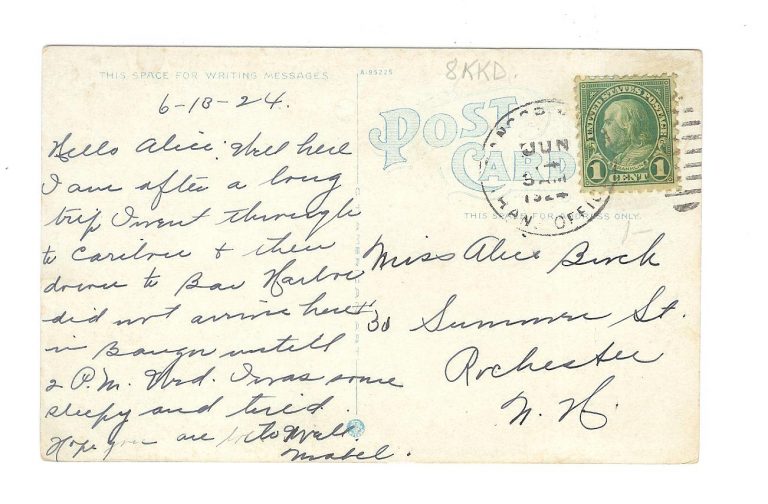 THIS SPACE FOR WRITING MESSAGES
A-95225
8KKD.
6-18-24.
POST
CARD
JUN
3 AM
1924
UNITED STATES POSTAGE
1 CENT 1
THIS SPACE FOR ADDRESS ONLY.
1-
Hello Alice: Well here
I am after a long
trip I went through
to Caribou & then
down to Bar Harbor
did not arrive here
in Bangor untill
2 P.M. Wed. I was some
sleepy and tired.
Hope you are well.
Mabel.
Miss Alice Birch
30 Summer St.
Rochester
N. H.